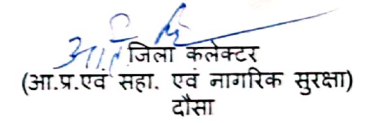 अति जिला कलेक्टर
(आ.प्र.एवं सहा. एवं नागरिक सुरक्षा)
दौसा